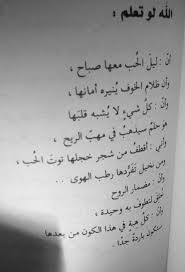 الله لو تعلم :
أنّ : ليلَ الحُب معها صباح ،
وأن ظلام الخوف يُنيره أمانها ،
وأن : كلُّ شيءٍ لا يُشبه قلبَها
هو حلمٌ سيذهبُ في مهبّ الريح ،
وأنني : أقطفُ من شجر خجلها توتَ الحُب ،
ومن نخيل تفرّدها رطب الهوى ..
وأن : مضمار الروح
خُلِقَ لتطوف به وحيدة ،
وأن : كلَّ هبةٍ في هذا الكون من بعدها
ستكون باردةً جدًا .